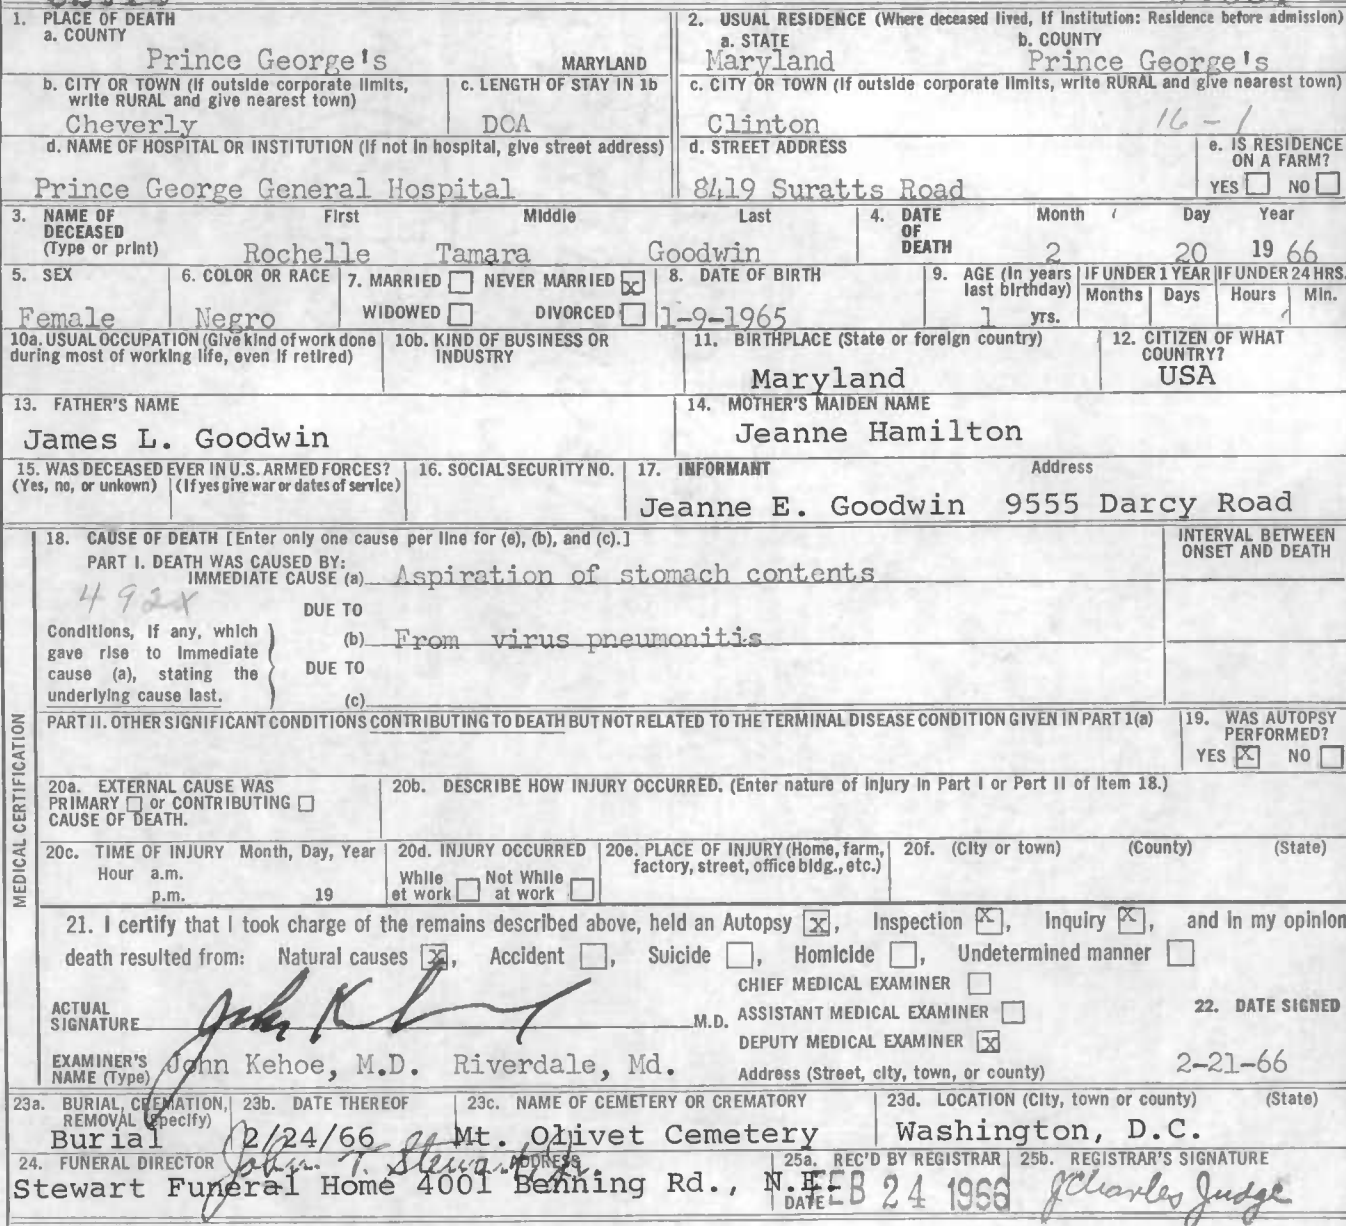 1. PLACE OF DEATH
a. COUNTY
Prince George's MARYLAND
2. USUAL RESIDENCE (Where deceased lived, If Institution: Residence before admission)
a. STATE b. COUNTY
Maryland Prince George's
b. CITY OR TOWN (If outside corporate limits, write RURAL and give nearest town)
Cheverly
c. LENGTH OF STAY IN 1b
DOA
c. CITY OR TOWN (If outside corporate limits, write RURAL and give nearest town)
Clinton 16-1
d. NAME OF HOSPITAL OR INSTITUTION (If not in hospital, give street address)
Prince George General Hospital
d. STREET ADDRESS
8419 Suratts Road
e. IS RESIDENCE ON A FARM?
YES NO
3. NAME OF DECEASED (Type or print)
First Middle Last
Rochelle Tamara Goodwin
4. DATE OF DEATH
Month Day Year
2 20 19 66
5. SEX
Female
6. COLOR OR RACE
Negro
7. MARRIED NEVER MARRIED X
WIDOWED DIVORCED
8. DATE OF BIRTH
1-9-1965
9. AGE (In years last birthday)
1 yrs.
IF UNDER 1 YEAR
Months Days
IF UNDER 24 HRS.
Hours Min.
10a. USUAL OCCUPATION (Give kind of work done during most of working life, even if retired)
10b. KIND OF BUSINESS OR INDUSTRY
11. BIRTHPLACE (State or foreign country)
Maryland
12. CITIZEN OF WHAT COUNTRY?
USA
13. FATHER'S NAME
James L. Goodwin
14. MOTHER'S MAIDEN NAME
Jeanne Hamilton
15. WAS DECEASED EVER IN U.S. ARMED FORCES?
(Yes, no, or unkown) (If yes give war or dates of service)
16. SOCIAL SECURITY NO.
17. INFORMANT Address
Jeanne E. Goodwin 9555 Darcy Road
MEDICAL CERTIFICATION
18. CAUSE OF DEATH [Enter only one cause per line for (e), (b), and (c).]
INTERVAL BETWEEN ONSET AND DEATH
PART I. DEATH WAS CAUSED BY:
IMMEDIATE CAUSE (a) Aspiration of stomach contents
492X
DUE TO
Conditions, if any, which gave rise to immediate cause (a), stating the underlying cause last.
(b) From virus pneumonitis
DUE TO
(c)
PART II. OTHER SIGNIFICANT CONDITIONS CONTRIBUTING TO DEATH BUT NOT RELATED TO THE TERMINAL DISEASE CONDITION GIVEN IN PART 1(a)
19. WAS AUTOPSY PERFORMED?
YES X NO
20a. EXTERNAL CAUSE WAS
PRIMARY or CONTRIBUTING
CAUSE OF DEATH.
20b. DESCRIBE HOW INJURY OCCURRED. (Enter nature of injury in Part I or Part II of Item 18.)
20c. TIME OF INJURY Month, Day, Year
Hour a.m.
p.m. 19
20d. INJURY OCCURRED
While et work Not While at work
20e. PLACE OF INJURY (Home, farm, factory, street, office bldg., etc.)
20f. (City or town) (County) (State)
21. I certify that I took charge of the remains described above, held an Autopsy X, Inspection X, Inquiry X, and in my opinion
death resulted from: Natural causes X, Accident , Suicide , Homicide , Undetermined manner
CHIEF MEDICAL EXAMINER
ACTUAL SIGNATURE John K M.D.
ASSISTANT MEDICAL EXAMINER
DEPUTY MEDICAL EXAMINER X
22. DATE SIGNED
2-21-66
EXAMINER'S NAME (Type) John Kehoe, M.D. Riverdale, Md.
Address (Street, city, town, or county)
23a. BURIAL, CREMATION, REMOVAL (Specify)
Burial
23b. DATE THEREOF
2/24/66
23c. NAME OF CEMETERY OR CREMATORY
Mt. Olivet Cemetery
23d. LOCATION (City, town or county) (State)
Washington, D.C.
24. FUNERAL DIRECTOR John T. Stewart ADDRESS
Stewart Funeral Home 4001 Benning Rd., N.E.
25a. REC'D BY REGISTRAR
DATE FEB 24 1966
25b. REGISTRAR'S SIGNATURE
J Charles Judge